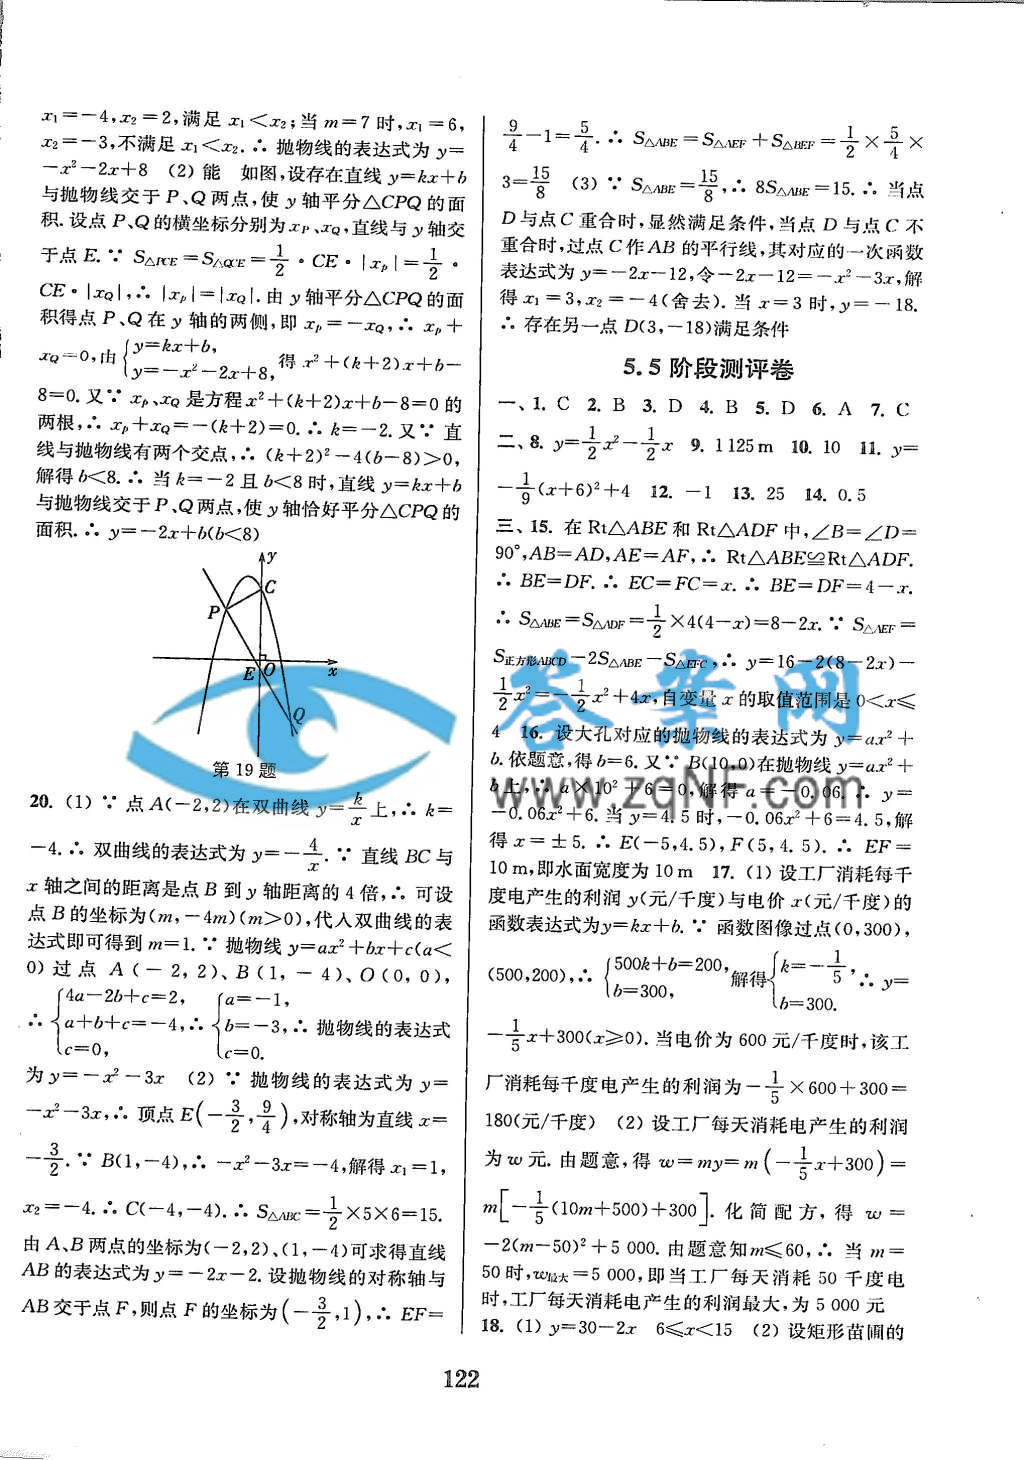 x₁=-4,x₂=2,满足 x₁<x₂;当 m=7 时,x₁=6,
x₂=-3,不满足 x₁<x₂.∴ 抛物线的表达式为 y=
-x²-2x+8 (2) 能 如图,设存在直线 y=kx+b
与抛物线交于 P、Q 两点,使 y 轴平分△CPQ 的面
积.设点 P、Q 的横坐标分别为 x_P、x_Q,直线与 y 轴交
于点 E.∵ S△PCE=S△QCE=1/2·CE·|x_P|=1/2·
CE·|x_Q|,∴ |x_P|=|x_Q|.由 y 轴平分△CPQ 的面
积得点 P、Q 在 y 轴的两侧,即 x_P=-x_Q,∴ x_P+
x_Q=0,由{y=kx+b, y=-x²-2x+8,得 x²+(k+2)x+b-
8=0.又∵ x_P、x_Q 是方程 x²+(k+2)x+b-8=0 的
两根,∴ x_P+x_Q=-(k+2)=0.∴ k=-2.又∵ 直
线与抛物线有两个交点,∴ (k+2)²-4(b-8)>0,
解得 b<8.∴ 当 k=-2 且 b<8 时,直线 y=kx+b
与抛物线交于 P、Q 两点,使 y 轴恰好平分△CPQ 的
面积.∴ y=-2x+b(b<8)
y
C
P
E O x
Q
第 19 题
20. (1) ∵ 点 A(-2,2)在双曲线 y=k/x 上,∴ k=
-4.∴ 双曲线的表达式为 y=-4/x.∵ 直线 BC 与
x 轴之间的距离是点 B 到 y 轴距离的 4 倍,∴ 可设
点 B 的坐标为(m,-4m)(m>0),代入双曲线的表
达式即可得到 m=1.∵ 抛物线 y=ax²+bx+c(a<
0) 过点 A(-2,2)、B(1,-4)、O(0,0),
∴ {4a-2b+c=2, a+b+c=-4, c=0, ∴ {a=-1, b=-3, c=0. ∴ 抛物线的表达式
为 y=-x²-3x (2) ∵ 抛物线的表达式为 y=
-x²-3x,∴ 顶点 E(-3/2,9/4),对称轴为直线 x=
-3/2.∵ B(1,-4),∴ -x²-3x=-4,解得 x₁=1,
x₂=-4.∴ C(-4,-4).∴ S△ABC=1/2×5×6=15.
由 A、B 两点的坐标为(-2,2)、(1,-4)可求得直线
AB 的表达式为 y=-2x-2.设抛物线的对称轴与
AB 交于点 F,则点 F 的坐标为(-3/2,1),∴ EF=
9/4-1=5/4.∴ S△ABE=S△AEF+S△BEF=1/2×5/4×
3=15/8 (3) ∵ S△ABE=15/8,∴ 8S△ABE=15.∴ 当点
D 与点 C 重合时,显然满足条件,当点 D 与点 C 不
重合时,过点 C 作 AB 的平行线,其对应的一次函数
表达式为 y=-2x-12,令-2x-12=-x²-3x,解
得 x₁=3,x₂=-4(舍去).当 x=3 时,y=-18.
∴ 存在另一点 D(3,-18)满足条件
5.5 阶段测评卷
一、1. C 2. B 3. D 4. B 5. D 6. A 7. C
二、8. y=1/2x²-1/2x 9. 1 125 m 10. 10 11. y=
-1/9(x+6)²+4 12. -1 13. 25 14. 0.5
三、15. 在 Rt△ABE 和 Rt△ADF 中,∠B=∠D=
90°,AB=AD,AE=AF,∴ Rt△ABE≌Rt△ADF.
∴ BE=DF.∴ EC=FC=x.∴ BE=DF=4-x.
∴ S△ABE=S△ADF=1/2×4(4-x)=8-2x.∵ S△AEF=
S正方形ABCD-2S△ABE-S△EFC,∴ y=16-2(8-2x)-
1/2x²=-1/2x²+4x,自变量 x 的取值范围是 0<x≤
4 16. 设大孔对应的抛物线的表达式为 y=ax²+
b.依题意,得 b=6.又∵ B(10,0)在抛物线 y=ax²+
b 上,∴ a×10²+6=0,解得 a=-0.06.∴ y=
-0.06x²+6.当 y=4.5 时,-0.06x²+6=4.5,解
得 x=±5.∴ E(-5,4.5),F(5,4.5).∴ EF=
10 m,即水面宽度为 10 m 17. (1) 设工厂消耗每千
度电产生的利润 y(元/千度)与电价 x(元/千度)的
函数表达式为y=kx+b.∵ 函数图像过点(0,300),
(500,200),∴ {500k+b=200, b=300, 解得{k=-1/5, b=300. ∴ y=
-1/5x+300(x≥0).当电价为 600 元/千度时,该工
厂消耗每千度电产生的利润为-1/5×600+300=
180(元/千度) (2) 设工厂每天消耗电产生的利润
为 w 元.由题意,得 w=my=m(-1/5x+300)=
m[-1/5(10m+500)+300].化简配方,得 w=
-2(m-50)²+5 000.由题意知m≤60,∴ 当 m=
50 时,w最大=5 000,即当工厂每天消耗 50 千度电
时,工厂每天消耗电产生的利润最大,为 5 000 元
18. (1) y=30-2x 6≤x<15 (2) 设矩形苗圃的
122
答案网
www.zqNF.com